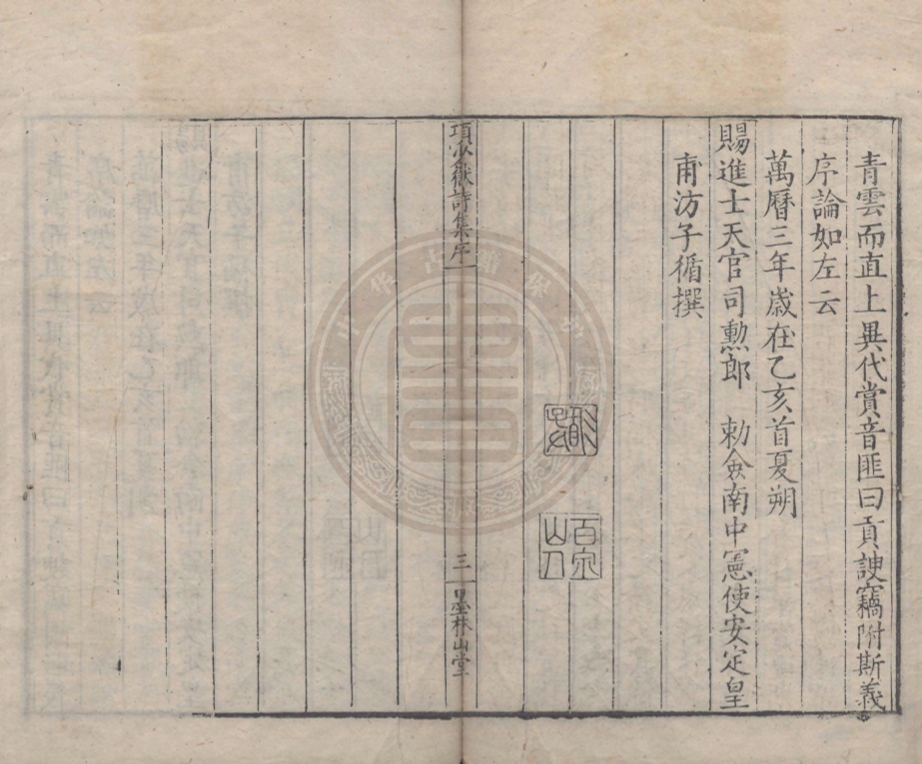 青雲而直上異代賞音匪曰貢諛竊附斯義
序論如左云
萬曆三年歲在乙亥首夏朔
賜進士天官司勳郎 勅僉南中憲使安定皇
甫汸子循撰
百泉
山人
項少嶽詩集序
三
墨林山堂